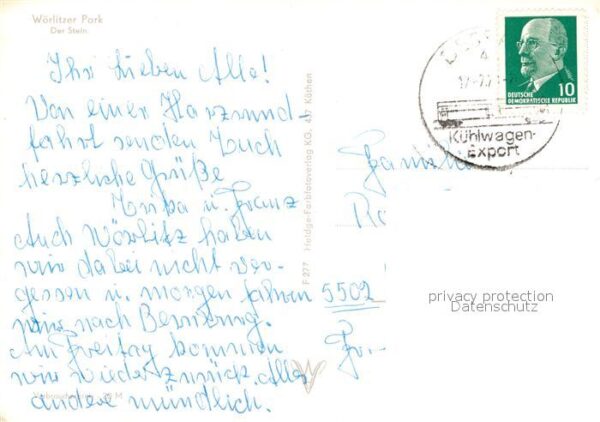 Wörlitzer Park
Der Stein
Ihr Lieben Alle!
Von einer Harzrund-
fahrt senden Euch
herzliche Grüße
u. Franz
Auch Wörlitz haben
wir dabei nicht ver-
gessen u. morgen fahren
wir nach Bernburg.
Am Freitag kommen
wir wieder zurück. Alles
andere mündlich.
Verbraucherpreis M
F 277 Heldge-Farbfotoverlag KG, 437 Köthen
DEUTSCHE
DEMOKRATISCHE REPUBLIK
10
Kühlwagen-
Export
Familie
5502
privacy protection
Datenschutz